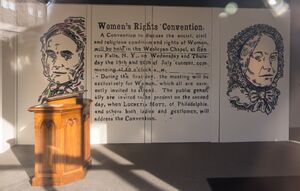 Women's Rights Convention.
A Convention to discuss the social, civil
and religious condition and rights of Woman,
will be held in the Wesleyan Chapel, at Sen-
eca Falls, N. Y., on Wednesday and Thurs-
day the 19th and 20th of July current, com-
mencing at 10 o'clock A. M.
During the first day, the meeting will be
exclusively for Women, which all are earn-
estly invited to attend. The public gener-
ally are invited to be present on the second
day, when LUCRETIA MOTT, of Philadelphia,
and others both ladies and gentlemen, will
address the Convention.